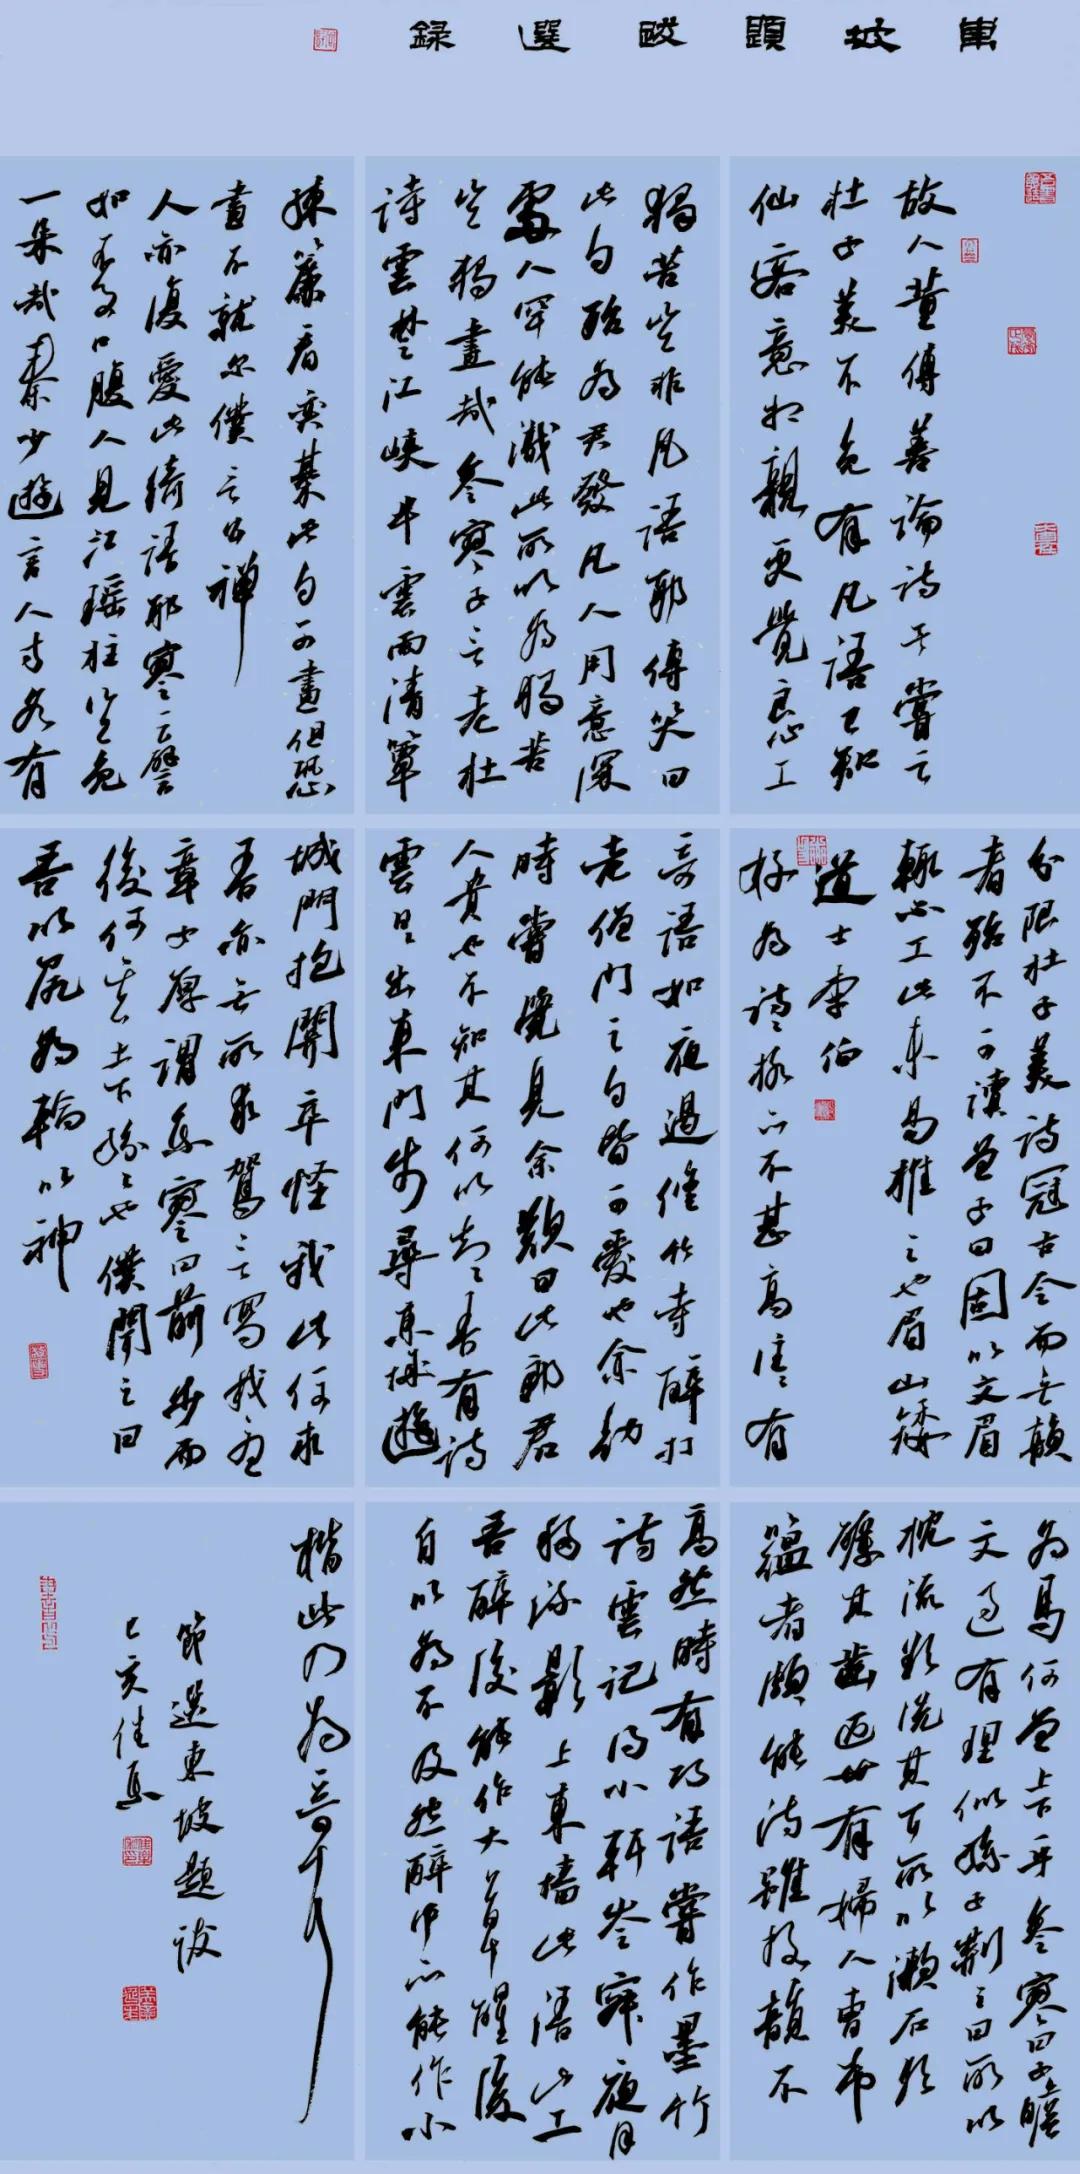 東坡題跋選錄
故人董傳善論詩予嘗云
杜子美不免有凡語已知
仙客意相親更覺良工
獨苦豈非凡語耶傳笑曰
此句殆為君發凡人用意深
處人罕能識此所以為獨苦
豈獨畫哉參寥子言老杜
詩雲楚江峽半雲雨清簟
疎簾看奕棊此句可畫但恐
畫不就尔僕言公禪
人亦復愛此綺語耶寥云譬
如不事口腹人見江瑤柱豈免
一朵哉秦少遊言人才各有
分限杜子美詩冠古今而無韻
者殆不可讀曾子曰固以文眉
輒不工此未易推之也眉山矮
道士李伯
好為詩格亦不甚高往往有
奇語如夜過修竹寺醉打
老僧門之句皆可愛也余幼
時嘗覺見余歎曰此郎君
人貴也不知其何以知之吾有詩
雲日日出東門步尋東城遊
城門抱關卒怪我此何求
吾亦無所求駕言寫我憂
章子厚謂參寥曰前步而
後何其上下紛紛也僕聞之曰
吾以尻為輪以神
為馬何曾上下乎參寥曰子瞻
文過有理似孫子荊之曰所以
枕流欲洗其耳所以漱石欲
礪其齒近世有婦人曹希
蘊者頗能詩雖格韻不
高然時有巧語嘗作墨竹
詩雲記得小軒岑寂夜月
移疎影上東牆此語甚工
吾醉後能作大草醒後
自以為不及然醉中亦能作小
楷此乃為奇耳
節選東坡題跋
己亥佳